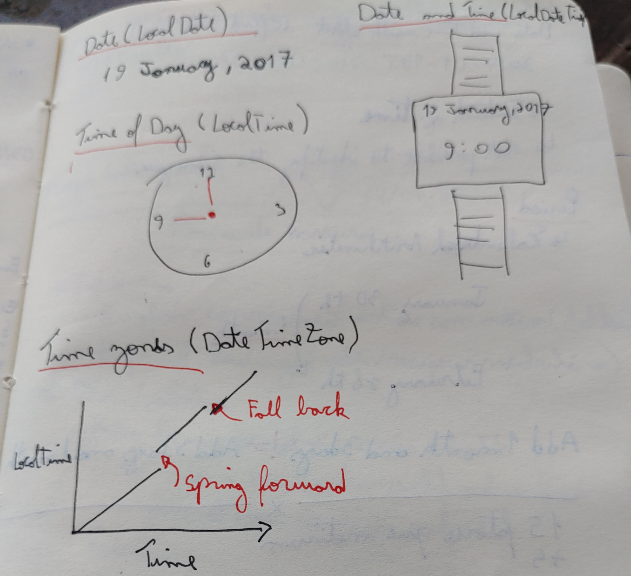 Date (LocalDate)
19 January, 2017
Time of Day (LocalTime)
12
9
3
6
Date and Time (LocalDateTim
19 January, 2017
9:00
Time zones (DateTimeZone)
LocalTime
Fall back
Spring forward
Time